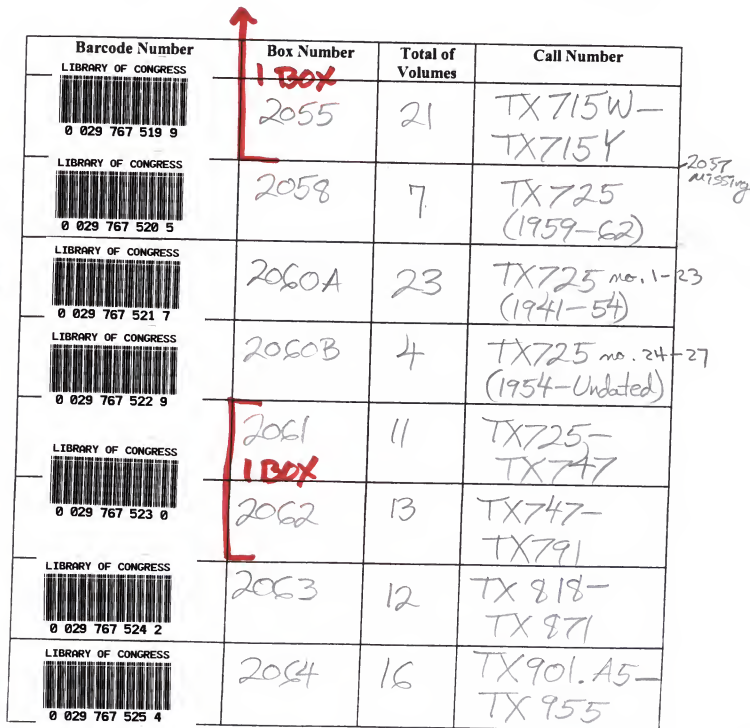 Barcode Number Box Number Total of Volumes Call Number
LIBRARY OF CONGRESS
1 BOX
0 029 767 519 9
2055 21 TX715W–
TX715Y
2057
missing
LIBRARY OF CONGRESS
0 029 767 520 5
2058 7 TX725
(1959–62)
LIBRARY OF CONGRESS
0 029 767 521 7
2060A 23 TX725 no. 1-23
(1941–54)
LIBRARY OF CONGRESS
0 029 767 522 9
2060B 4 TX725 no. 24-27
(1954–Undated)
LIBRARY OF CONGRESS
0 029 767 523 0
2061 11 TX725–
TX747
1 BOX
2062 13 TX747–
TX791
LIBRARY OF CONGRESS
0 029 767 524 2
2063 12 TX 818–
TX 871
LIBRARY OF CONGRESS
0 029 767 525 4
2064 16 TX901.A5–
TX 955